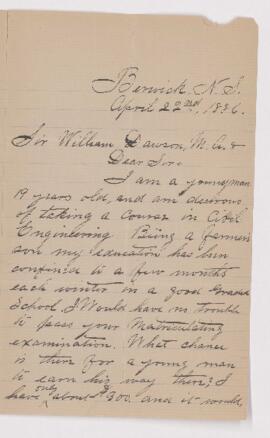 Berwick, N.S.
April 22nd, 1886.
Sir William Dawson, M.A. &
Dear Sir:
I am a young man
19 years old, and am desirous
of taking a Course in Civil
Engineering. Being a farmers
son my education has been
confined to a few months
each winter in a good Graded
School. I Would have no trouble
to pass your Matriculating
examination. What chance
is there for a young man
to earn his way there; I
have only about $300. and it would,